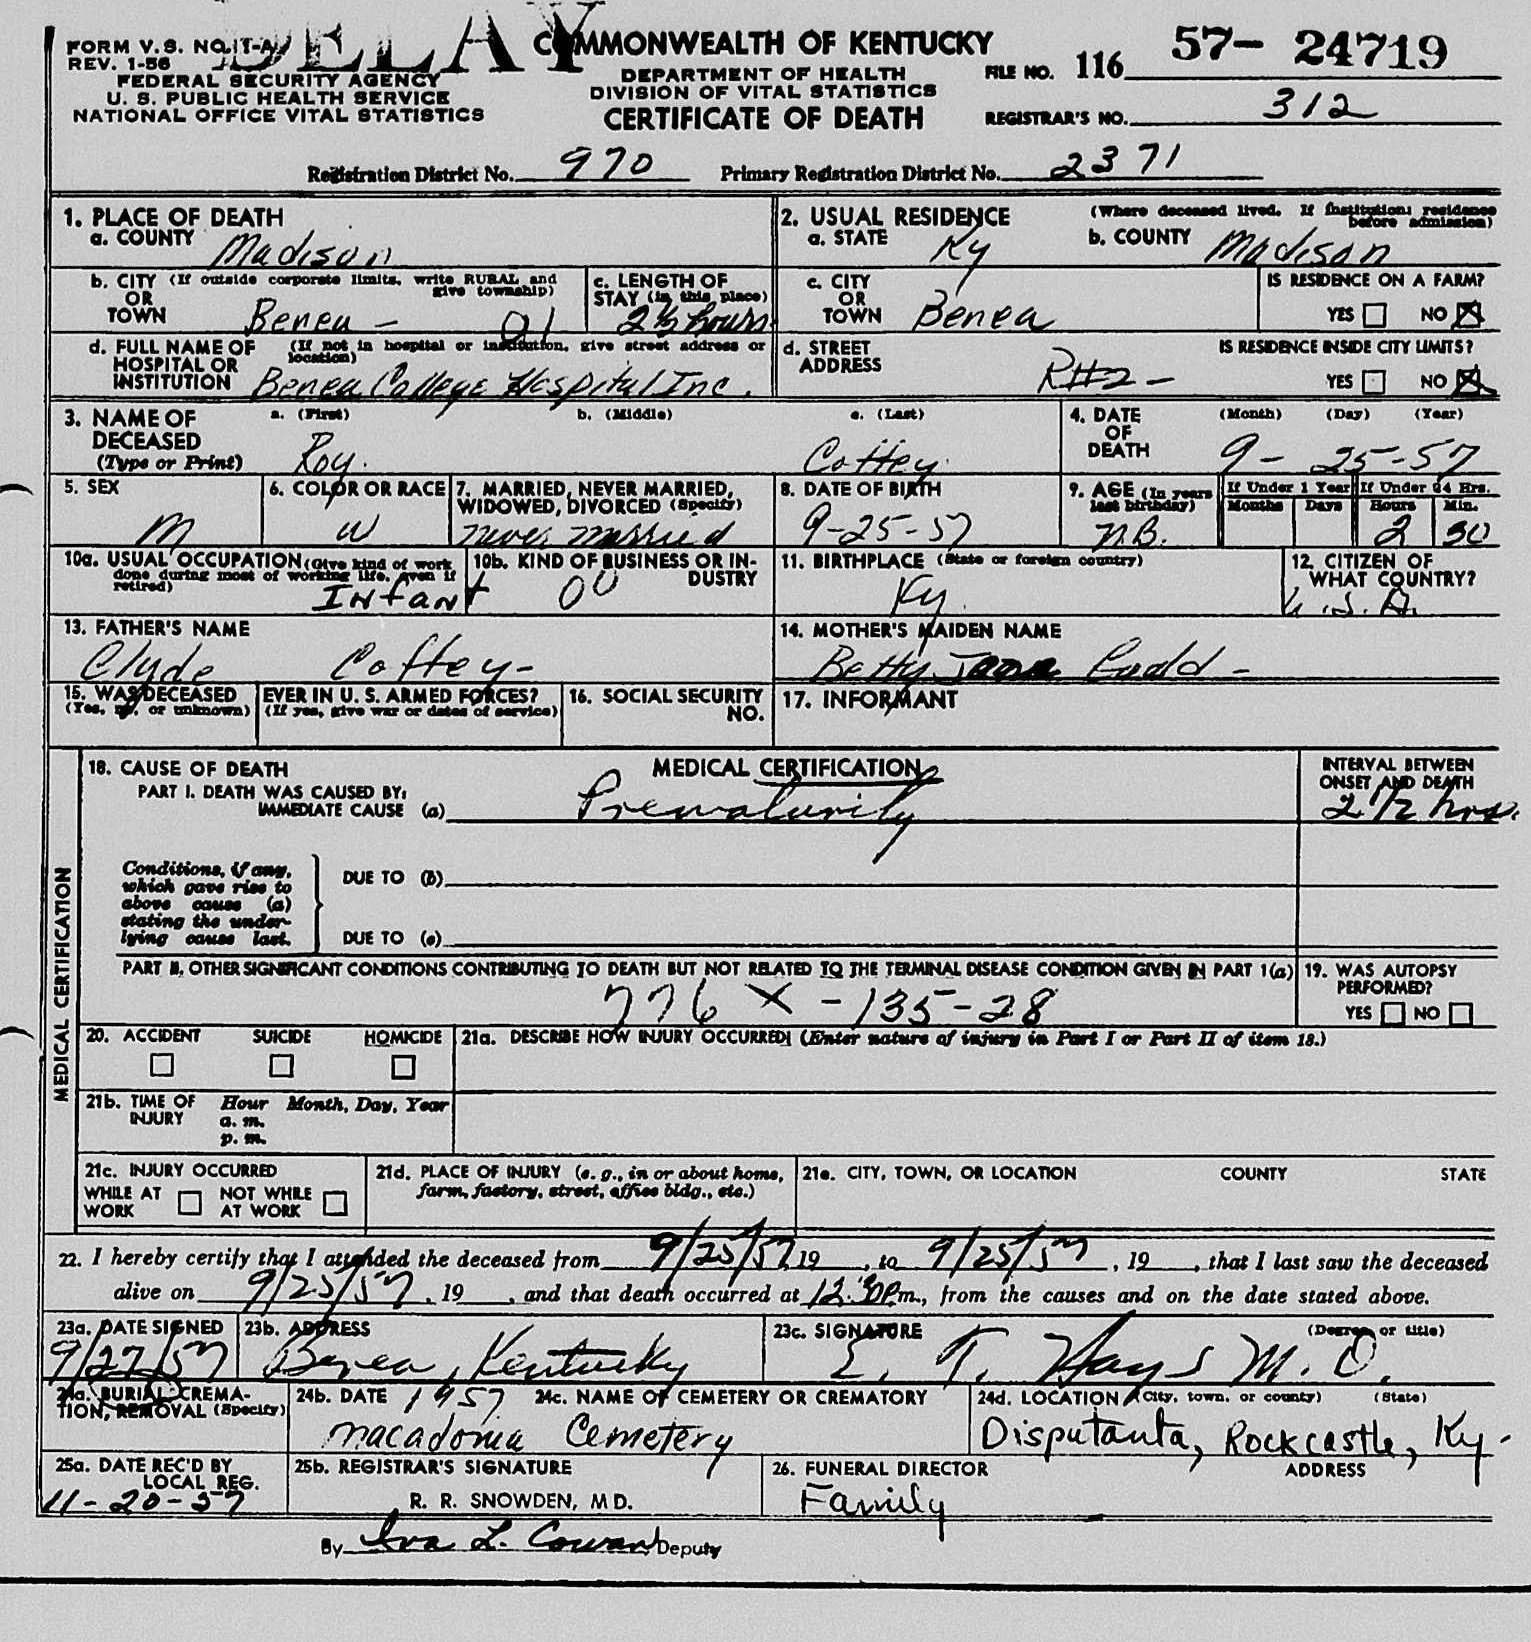 DELAY
FORM V. S. NO. 1-A
REV. 1-56
FEDERAL SECURITY AGENCY
U. S. PUBLIC HEALTH SERVICE
NATIONAL OFFICE VITAL STATISTICS
COMMONWEALTH OF KENTUCKY
DEPARTMENT OF HEALTH
DIVISION OF VITAL STATISTICS
CERTIFICATE OF DEATH
FILE NO. 116 57- 24719
REGISTRAR'S NO. 312
Registration District No. 970 Primary Registration District No. 2371
1. PLACE OF DEATH
a. COUNTY Madison
2. USUAL RESIDENCE (Where deceased lived. If institution: residence before admission)
a. STATE Ky b. COUNTY Madison
b. CITY (If outside corporate limits, write RURAL and give township)
OR
TOWN Berea - 01
c. LENGTH OF
STAY (in this place)
2½ hours
c. CITY
OR
TOWN Berea
IS RESIDENCE ON A FARM?
YES NO X
d. FULL NAME OF (If not in hospital or institution, give street address or location)
HOSPITAL OR
INSTITUTION Berea College Hospital Inc.
d. STREET
ADDRESS R#2 -
IS RESIDENCE INSIDE CITY LIMITS?
YES NO X
3. NAME OF
DECEASED
(Type or Print)
a. (First) b. (Middle) c. (Last)
Roy. Coffey.
4. DATE
OF
DEATH
(Month) (Day) (Year)
9- 25-57
5. SEX
M
6. COLOR OR RACE
W
7. MARRIED, NEVER MARRIED,
WIDOWED, DIVORCED (Specify)
never married
8. DATE OF BIRTH
9-25-57
9. AGE (In years
last birthday)
N.B.
If Under 1 Year
Months Days
If Under 24 Hrs.
Hours Min.
2 30
10a. USUAL OCCUPATION (Give kind of work
done during most of working life, even if
retired)
Infant
10b. KIND OF BUSINESS OR IN-
DUSTRY
00
11. BIRTHPLACE (State or foreign country)
Ky.
12. CITIZEN OF
WHAT COUNTRY?
U. S. A.
13. FATHER'S NAME
Clyde Coffey-
14. MOTHER'S MAIDEN NAME
Betty
15. WAS DECEASED EVER IN U. S. ARMED FORCES?
(Yes, no, or unknown) (If yes, give war or dates of service)
16. SOCIAL SECURITY
NO.
17. INFORMANT
MEDICAL CERTIFICATION
18. CAUSE OF DEATH
MEDICAL CERTIFICATION
INTERVAL BETWEEN
ONSET AND DEATH
PART I. DEATH WAS CAUSED BY:
IMMEDIATE CAUSE (a) Prematurity 2 1/2 hrs.
Conditions, if any,
which gave rise to
above cause (a)
stating the under-
lying cause last.
DUE TO (b)
DUE TO (c)
PART II. OTHER SIGNIFICANT CONDITIONS CONTRIBUTING TO DEATH BUT NOT RELATED TO THE TERMINAL DISEASE CONDITION GIVEN IN PART 1(a)
776 X - 135-28
19. WAS AUTOPSY
PERFORMED?
YES NO
20. ACCIDENT SUICIDE HOMICIDE
21a. DESCRIBE HOW INJURY OCCURRED: (Enter nature of injury in Part I or Part II of item 18.)
21b. TIME OF
INJURY
Hour Month, Day, Year
a. m.
p. m.
21c. INJURY OCCURRED
WHILE AT
WORK
NOT WHILE
AT WORK
21d. PLACE OF INJURY (e. g., in or about home,
farm, factory, street, office bldg., etc.)
21e. CITY, TOWN, OR LOCATION COUNTY STATE
22. I hereby certify that I attended the deceased from 9/25/57, 19 , to 9/25/57, 19 , that I last saw the deceased
alive on 9/25/57, 19 , and that death occurred at 12:30 P.m., from the causes and on the date stated above.
23a. DATE SIGNED
9/27/57
23b. ADDRESS
Berea, Kentucky
23c. SIGNATURE (Degree or title)
E. T. Hays M. D.
24a. BURIAL, CREMA-
TION, REMOVAL (Specify)
24b. DATE 1957
24c. NAME OF CEMETERY OR CREMATORY
Macadonia Cemetery
24d. LOCATION (City, town, or county) (State)
Disputanta, Rockcastle, Ky.
25a. DATE REC'D BY
LOCAL REG.
11-20-57
25b. REGISTRAR'S SIGNATURE
R. R. SNOWDEN, M D.
26. FUNERAL DIRECTOR ADDRESS
Family
By Iva L. Cowan Deputy